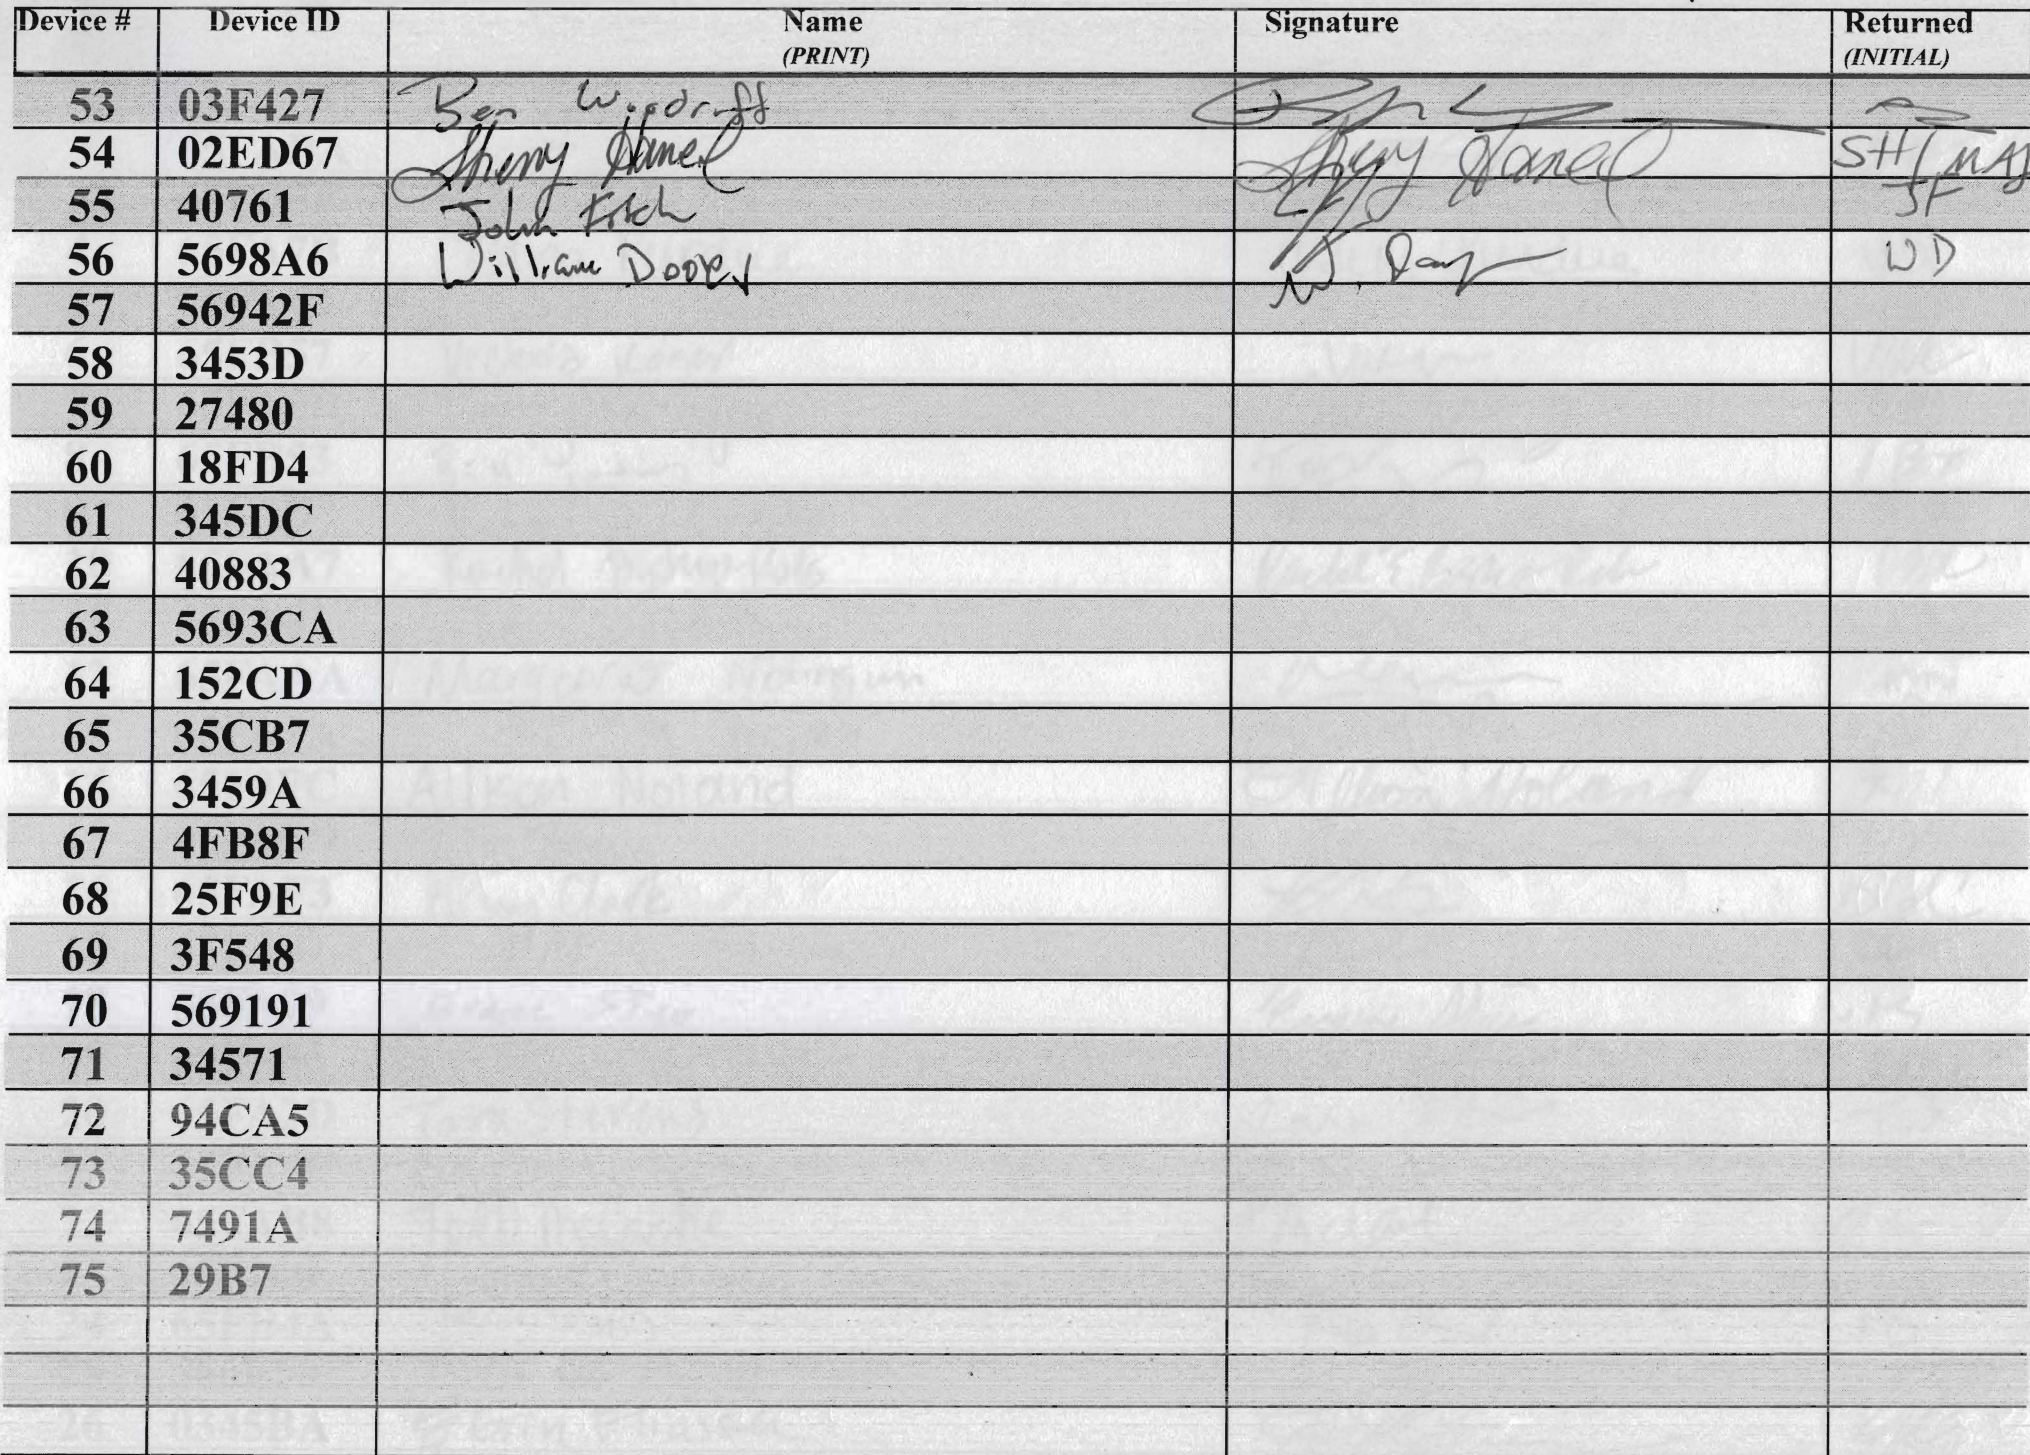 Device # Device ID Name Signature Returned
(PRINT) (INITIAL)
53 03F427 Ben Woodruff
54 02ED67 Sherry Hamel Sherry Hamel SH/MAJ
55 40761 John Fitch JF
56 5698A6 William Dooley WD
57 56942F W. Dooley
58 3453D
59 27480
60 18FD4
61 345DC
62 40883
63 5693CA
64 152CD
65 35CB7
66 3459A
67 4FB8F
68 25F9E
69 3F548
70 569191
71 34571
72 94CA5
73 35CC4
74 7491A
75 29B7
26 0345BA